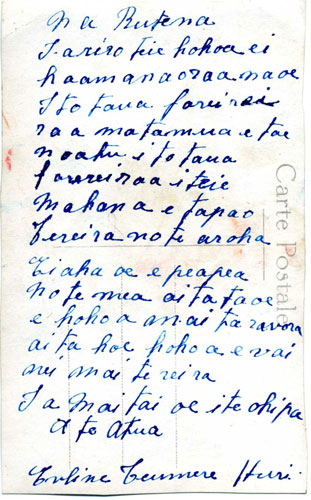 Na Rutena
I ariro teie hohoa ei
haamanaoraa na oe
I to taua farerei
raa matamua e tae
noatu i to taua
farereiraa i teie
Mahana e tapao
Tereira no te aroha
Eiaha oe e peapea
no te mea aita ta oe
e hohoa maitaravora
aita hoe hohoa e vai
nei mai te reira
Ia Maitai oe i te ohipa
A te Atua
Evline Teumere Huri.
Carte Postale